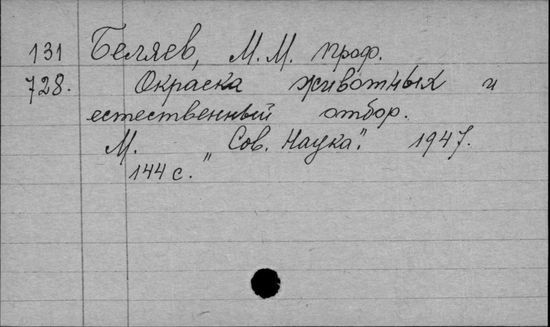 131 Беляев, М.М. проф.
728. Окраска животных и
естественный отбор.
М. „Сов. Наука". 1947.
144 с.